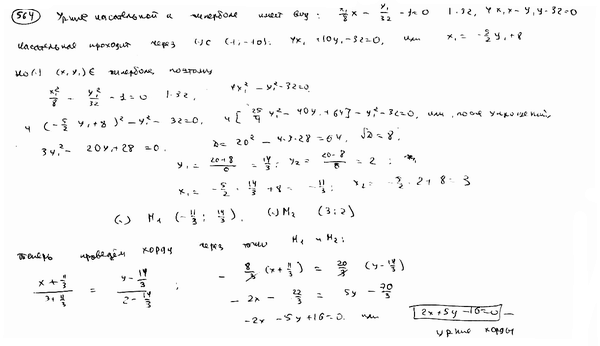 564 Ур-ние касательной к гиперболе имеет вид: x₁/8 x − y₁/32 − 1 = 0 | · 32, 4x₁x − y₁y − 32 = 0
касательная проходит через (·) C (−1, −10): 4x₁ + 10y₁ − 32 = 0, или x₁ = −5/2 y₁ + 8
Но (·) (x₁ y₁) ∈ гиперболе, поэтому
x₁²/8 − y₁²/32 − 1 = 0 | · 32, 4x₁² − y₁² − 32 = 0
4 (−5/2 y₁ + 8)² − y₁² − 32 = 0. 4 [25/4 y₁² − 40y₁ + 64] − y₁² − 32 = 0, или, после упрощений,
3y₁² − 20y₁ + 28 = 0. D = 20² − 4·3·28 = 64, √D = 8,
y₁ = (20+8)/6 = 14/3; y₂ = (20−8)/6 = 2;
x₁ = −5/2 · 14/3 + 8 = −11/3; x₂ = −5/2 · 2 + 8 = 3
(·) M₁ (−11/3; 14/3), (·) M₂ (3; 2)
Теперь проведём хорду через точки M₁ и M₂:
(x + 11/3)/(3 + 11/3) = (y − 14/3)/(2 − 14/3); −8/3 (x + 11/3) = 20/3 (y − 14/3)
−2x − 22/3 = 5y − 70/3
−2x − 5y + 16 = 0. или 2x + 5y − 16 = 0 —
ур-ние хорды